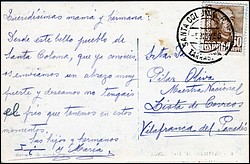 Queridísimas mamá y hermana:
Desde este bello pueblo de
Santa Coloma, que ya conocéis,
os enviamos un abrazo muy
fuerte y deseamos no tengáis
el frío que tenemos en estos
momentos.
Sus hijos y hermanos
y María
SANTA COLOMA
Pilar Oliva
Maestra Nacional
Lista de Correos
Vilafranca del Panadés